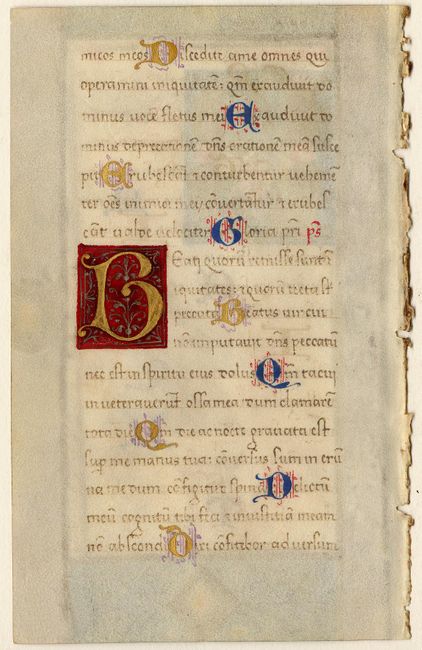 micos meos Discedite a me omnes qui
operamini iniquitatē: qm̄ exaudiuit do
minus uocē fletus mei Exaudiuit do
minus deprecationē dn̄s orationē meā susce
pit Erubescāt & conturbentur uehemē
ter oēs inimici mei cōuertātur & erubes
cāt ualde uelociter Gloria pr̄i p̄s
Beati quorū remisse sunt in
iquitates: & quorū tecta st̄
peccata Beatus uir cui
nō imputauit dn̄s peccatū
nec est in spiritu eius dolus Qm̄ tacui
inueterauerūt ossa mea dum clamarem
tota die Qm̄ die ac nocte grauata est
sup me manus tua: cōuersus sum in erū
na mea dum cōfigitur spina Delictū
meū cognitū tibi feci & iniustitiā meam
nō abscondi Dixi cōfitebor aduersum